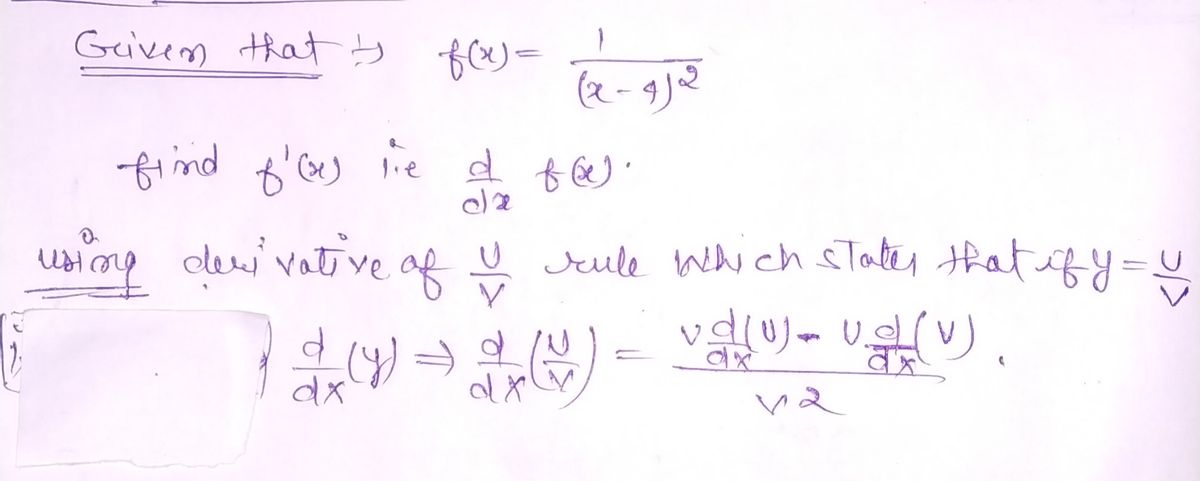 Given that ⇒ f(x) = 1/(x-4)2
find f'(x) i.e d/dx f(x).
using derivative of U/V rule which states that if y = U/V
d/dx (y) ⇒ d/dx (U/V) = (V d/dx (U) - U d/dx (V))/V2 .